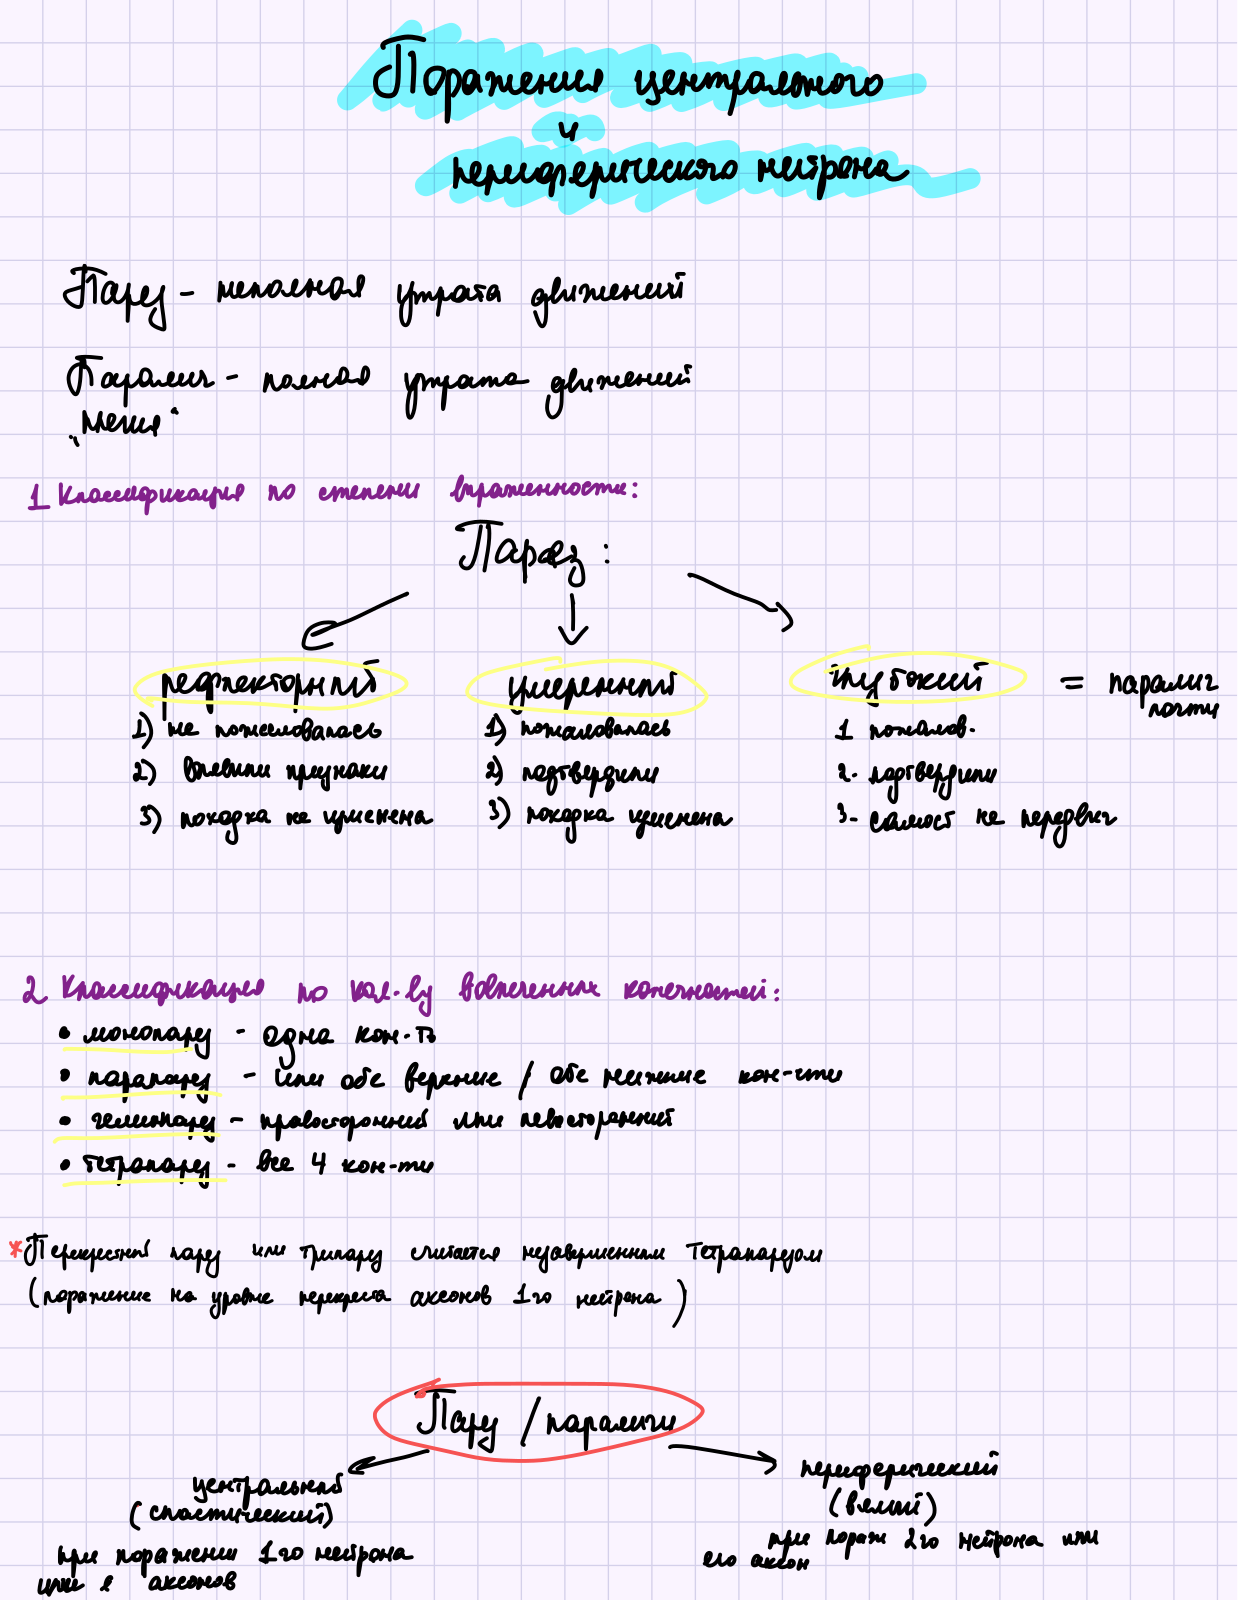 Поражения центрального
и
периферического нейрона
Парез - неполная утрата движений
Паралич - полная утрата движений
"плегия"
1 Классификация по степени выраженности:
Парез:
рефлекторный умеренный глубокий = паралич почти
1) не пожаловалась 1) пожаловалась 1 пожалов.
2) выявили признаки 2) подтвердили 2. подтвердили
3) походка не изменена 3) походка изменена 3. самост не передвиг
2 Классификация по кол-ву вовлеченных конечностей:
• монопарез - одна кон-ть
• парапарез - или обе верхние / обе нижние кон-чти
• гемипарез - правосторонний или левосторонний
• тетрапарез - все 4 кон-ти
*Перекрестный парез или трипарез считается незавершенным тетрапарезом
(поражение на уровне перекреста аксонов 1го нейрона)
Парез / параличи
центральный
(спастический)
при поражении 1го нейрона
аксонов
периферический
(вялый)
при пораж 2го нейрона или
его аксон